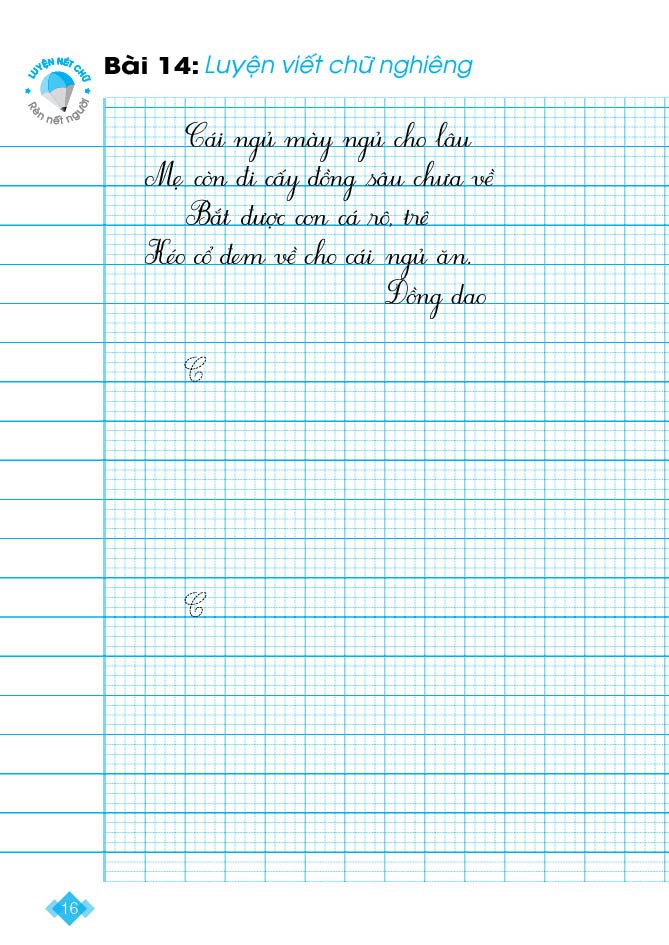 LUYỆN NÉT CHỮ
Rèn nết người
Bài 14: Luyện viết chữ nghiêng
Cái ngủ mày ngủ cho lâu
Mẹ còn đi cấy đồng sâu chưa về
Bắt được con cá rô, trê
Kéo cổ đem về cho cái ngủ ăn.
Đồng dao
C
C
16